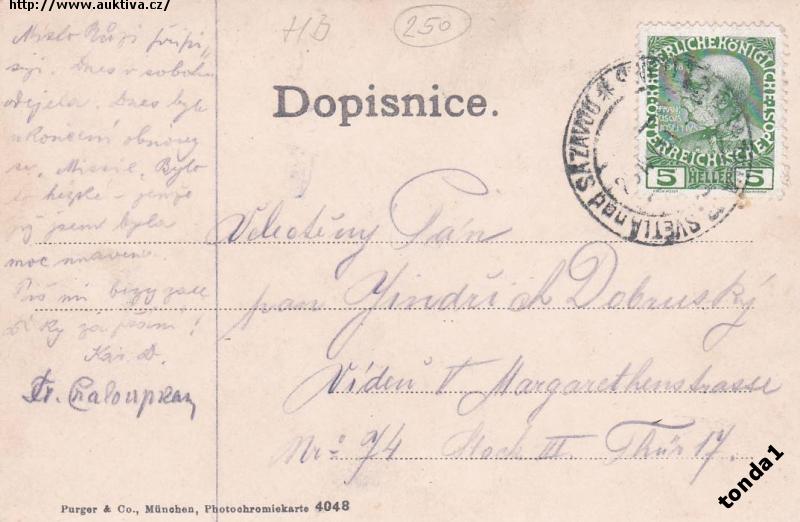 http://www.auktiva.cz/
HB
250
Dopisnice.
KAISERLICHE KÖNIGLICHE
ÖSTERREICHISCHE POST
5 HELLER 5
SVĚTLÁ nad SÁZAVOU
Místo Růži připi-
suji. Dnes v sobotu
odjela. Dnes byla
ukončení obnovy
sv. Missií. Bylo
to hezké – jenže
já jsem byla
moc unavena.
Piš mi brzy zase
Díky za psaní!
Velectěný Pán
pan Jindřich Dobruský
Vídeň V Margarethenstrasse
Nro 74 Stock III. Thür 17.
Purger & Co., München, Photochromiekarte 4048
tonda1